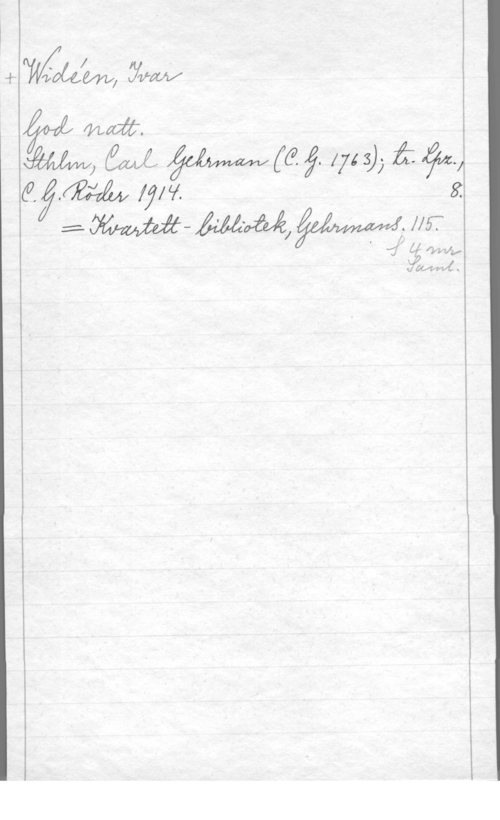 + Widéen, Ivar
God natt.
Sthlm, Carl Gehrman (C. G. 1763); tr. Lpz.,
C. G. Röder 1914. 8.
= Kvartett-bibliotek, Gehrmans. 115.
f 4 mr
Saml.